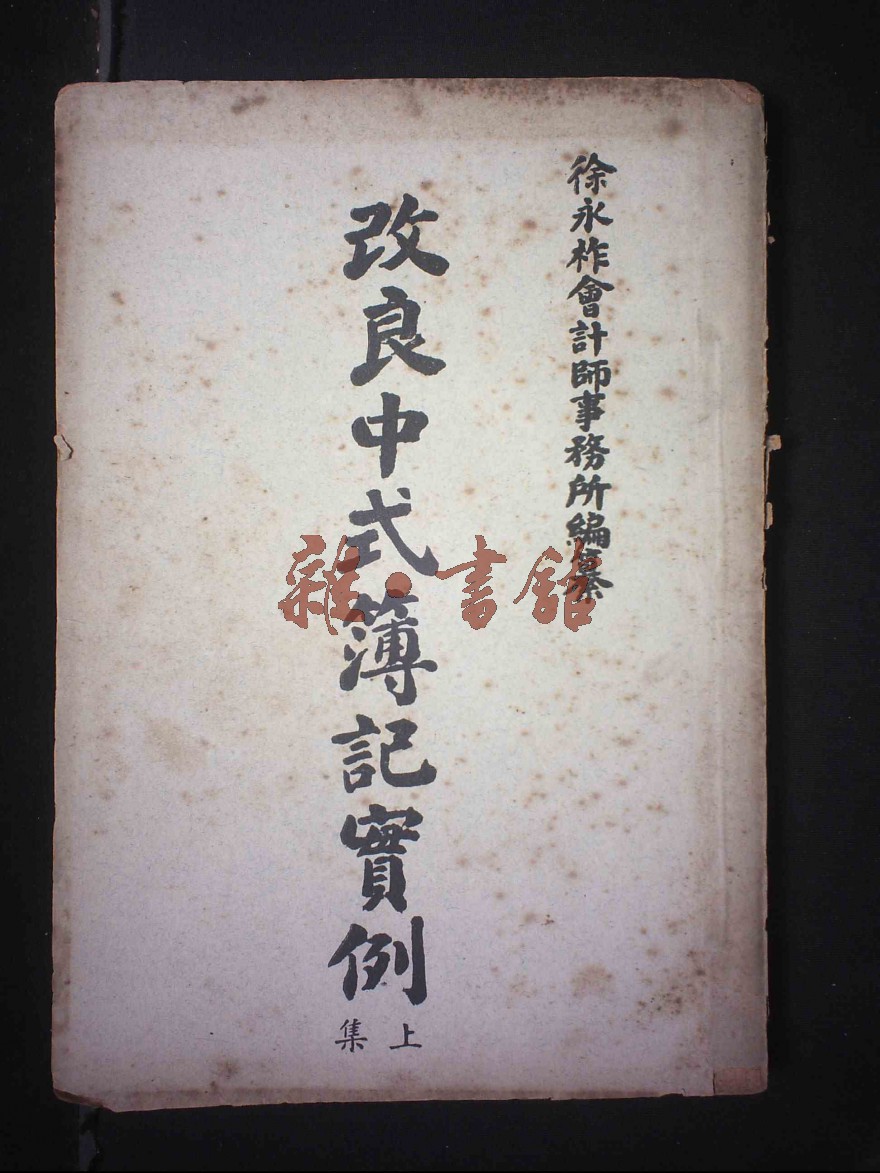 徐永柞會計師事務所編纂
改良中式簿記實例
上集
雜·書館